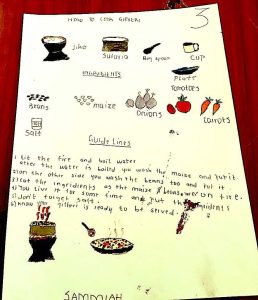 3
HOW TO COOK GITHERI
Jiko
Sufuria
Big spoon
CUP
Plate
INGREDIENTS
Beans
maize
Onions
Tomatoes
Carrots
Salt
Guide Lines
1) Lit the fire and boil water
after the water is boild you wash the maize and put it.
2) on the other side you wash the beans too and put it
3) Cut the ingredients as the maize & beans
4) You stir it for some time and put the ingredients
5) Don't forget salt.
6) know your githeri is ready to be served.